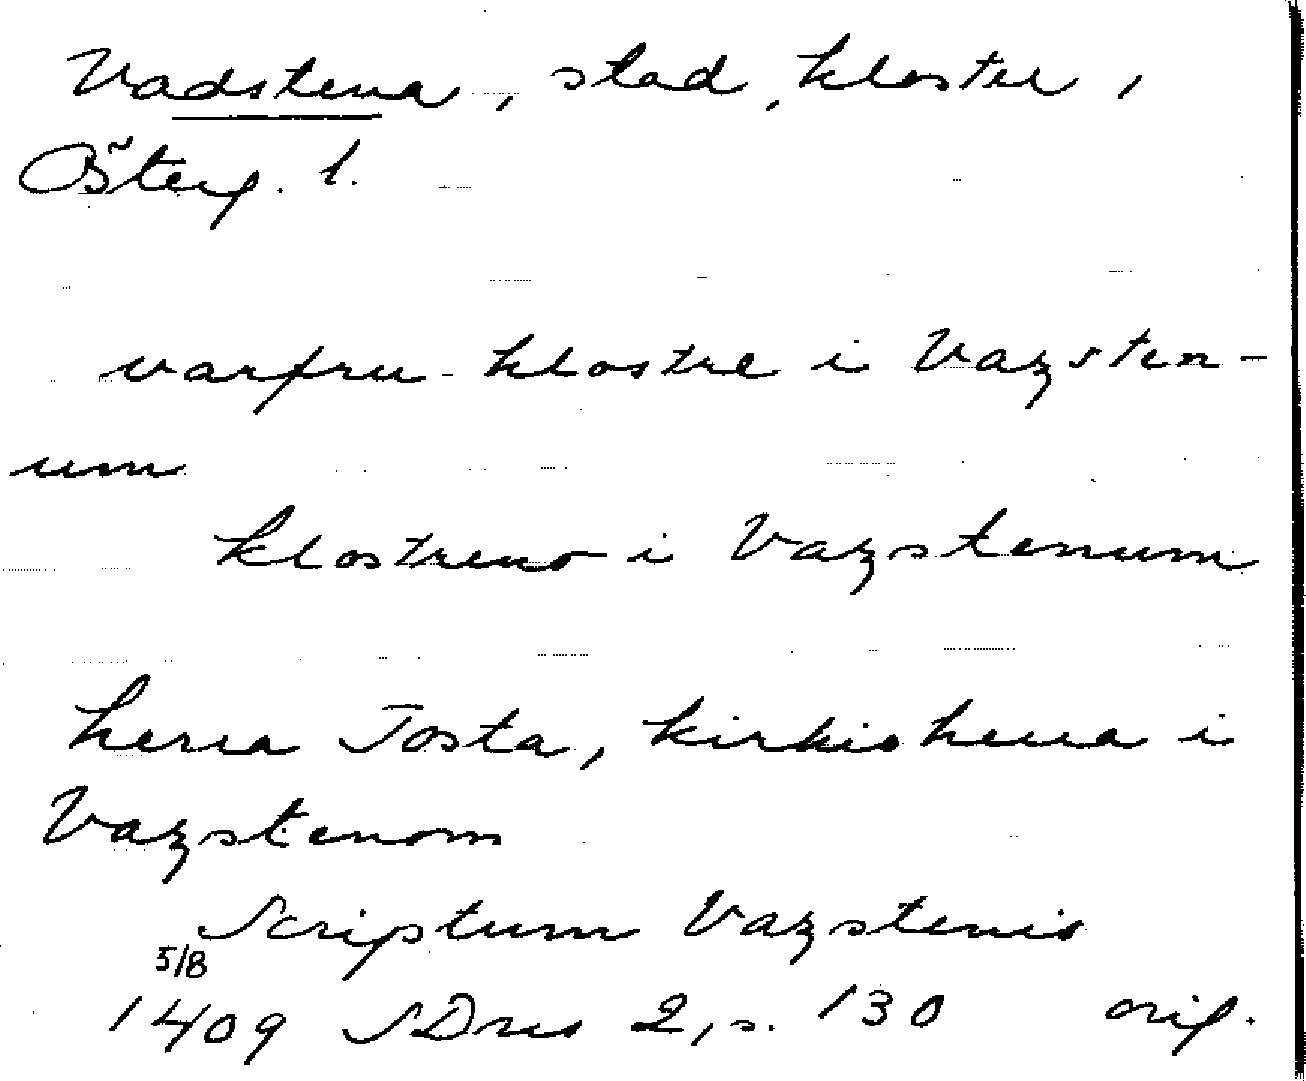 Vadstena, stad, kloster,
Österg. l.
varfru klostre i Vazsten-
um
klostreno i Vazstenum
herra Josta, kirkioherra i
Vazstenom
Scriptum Vazstenis
5/8
1409 SDns 2, s. 130 orig.